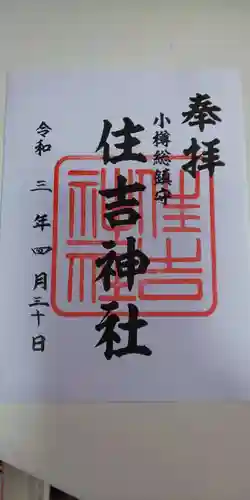 奉拝
小樽総鎮守
住吉神社
令和三年四月三十日
住吉
神社